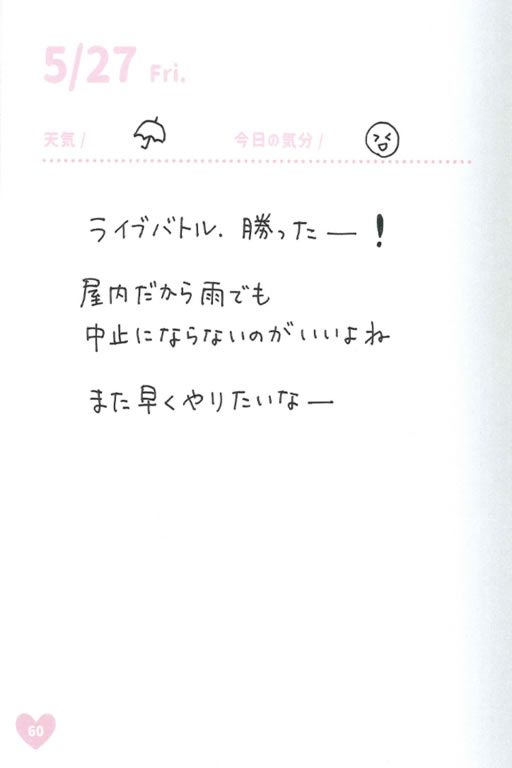 5/27 Fri.
天気/ 今日の気分/
ライブバトル、勝ったー！
屋内だから雨でも
中止にならないのがいいよね
また早くやりたいなー
60